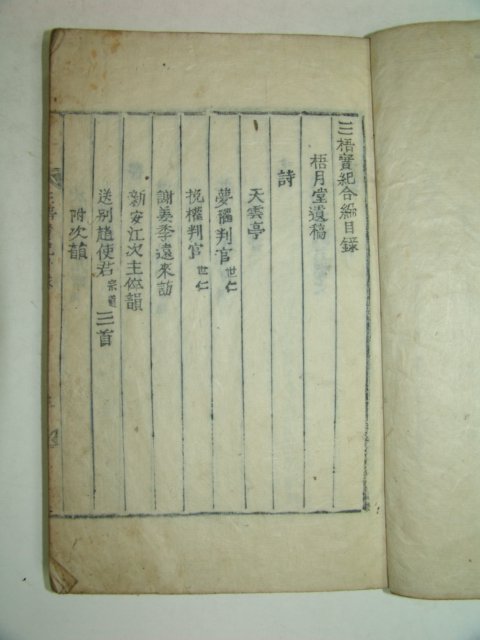 三梧實紀合編目錄
梧月堂遺稿
詩
天雲亭
夢權判官 世仁
挽權判官 世仁
謝姜季遠來訪
新安江次主倅韻
送別趙使君 宗道 三首
附次韻